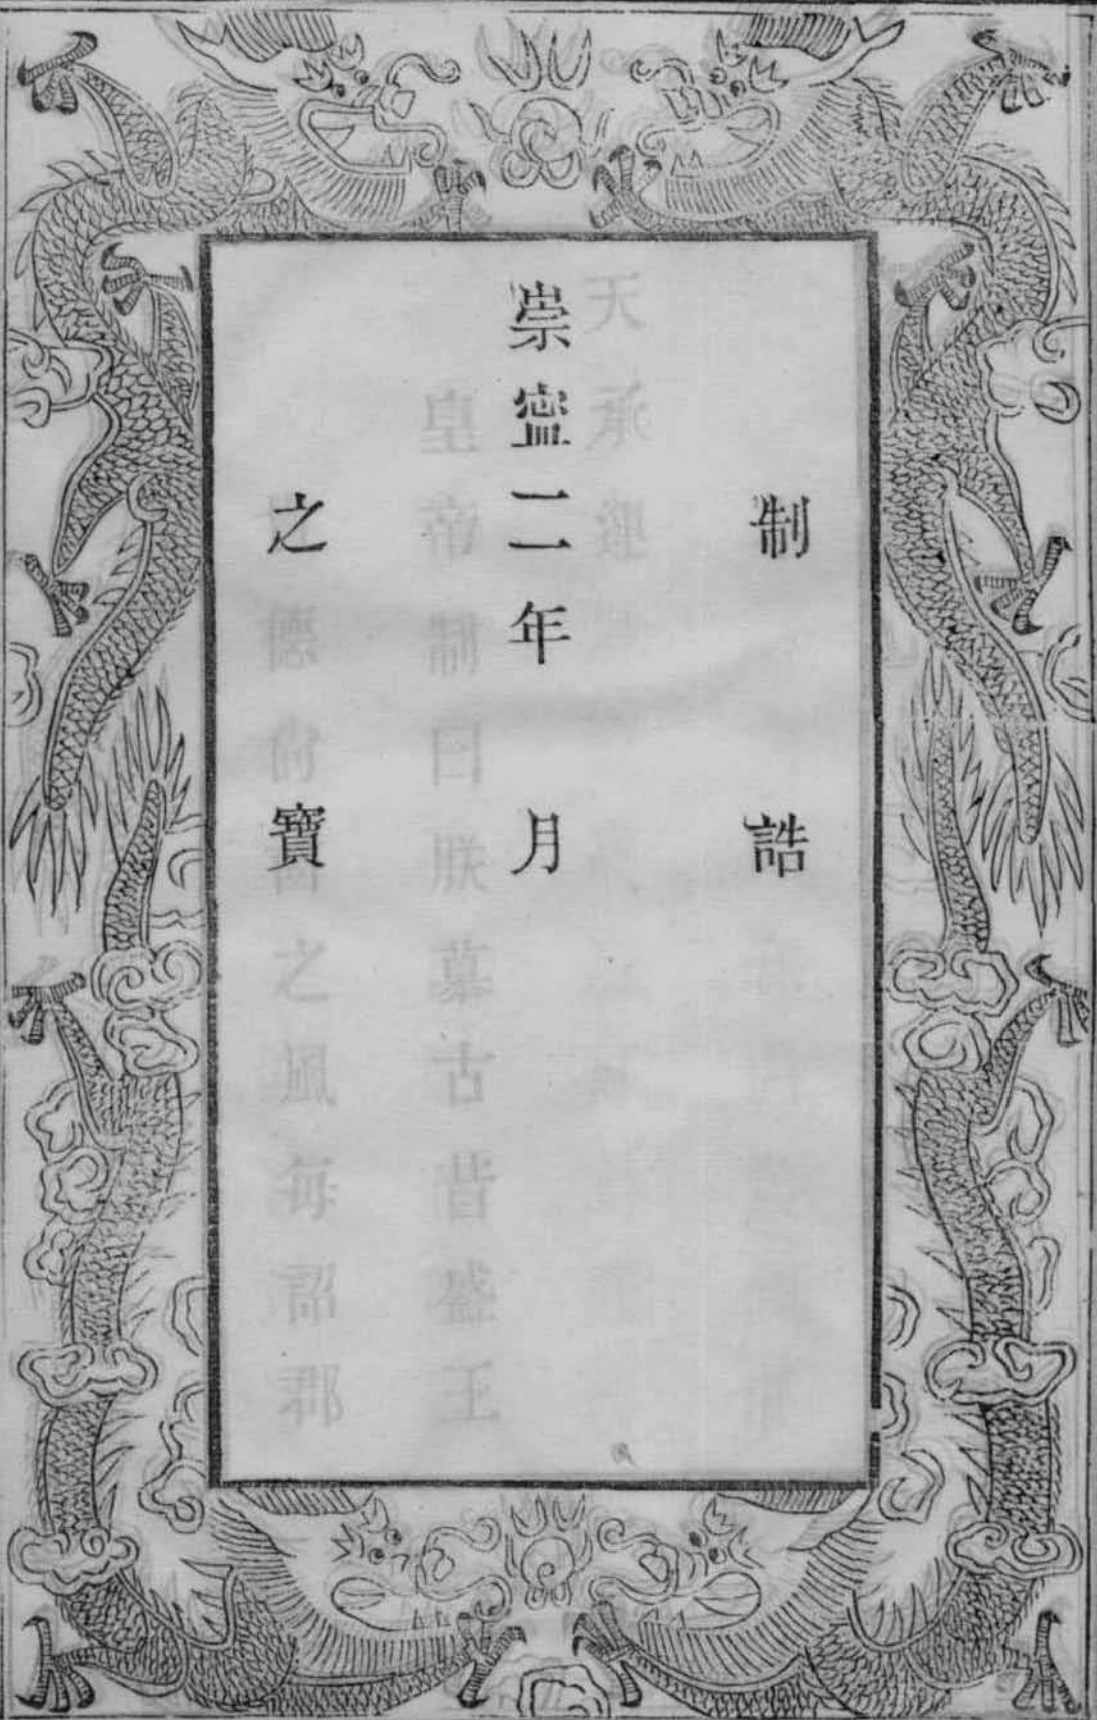 制誥
崇寧二年 月
之寶